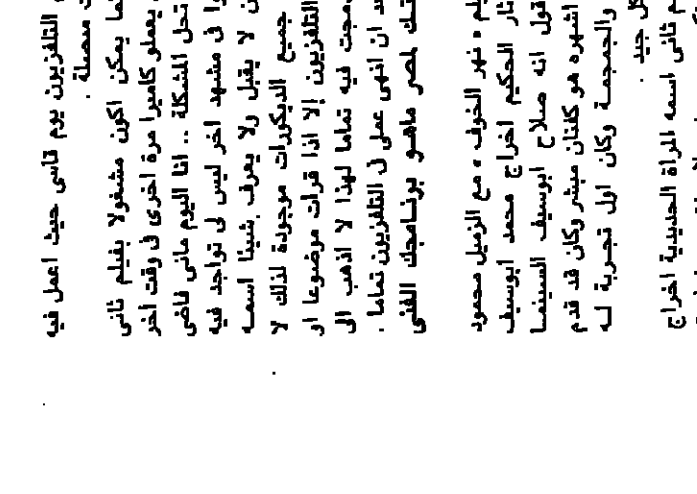 التلفزيون يوم قاسى حيث اعمل فيه
متصلة .
ما يمكن اكون مشغولا بفيلم ثانى
يعملو كاميرا مرة اخرى فى وقت اخر
تحل المشكلة .. انا اليوم مانى فاضى
وا فى مشهد اخر ليس لى تواجد فيه
ن لا يقبل ولا يعرف شيئا اسمه
جميع الديكورات موجودة لذلك لا
التلفزيون إلا اذا قرات موضوعا او
مجت فيه تماما لهذا لا اذهب الى
د ان انهى عملى فى التلفزيون تماما .
تك لمصر ماهو برنامجك الفنى
لم « نهر الخوف » مع الزميل محمود
ثار الحكيم اخراج محمد ابوسيف
قول انه صلاح ابوسيف السينما
اشهره هو كلفنان مبشر وكان قد قدم
والجمجمة وكان اول تجربة له
ل جيد .
م ثانى اسمه المراة الحديدية اخراج